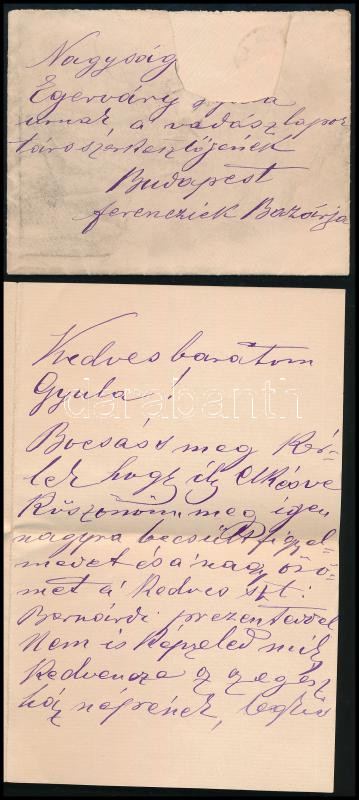 Nagyság
Egerváry Gyula
urnak a vadászlapok
társszerkesztőjének
Budapest
ferencziek Bazárja
Kedves barátom
Gyula!
Bocsáss meg kér-
lek hogy ily elkésve
Köszönöm meg igen
nagyra becsült figyel-
medet és a nagy örö-
met a kedves szt:
Bernárdi prezenteddel
Nem is képzeled mily
Kedvencze az egész
ház népének,
darabanth